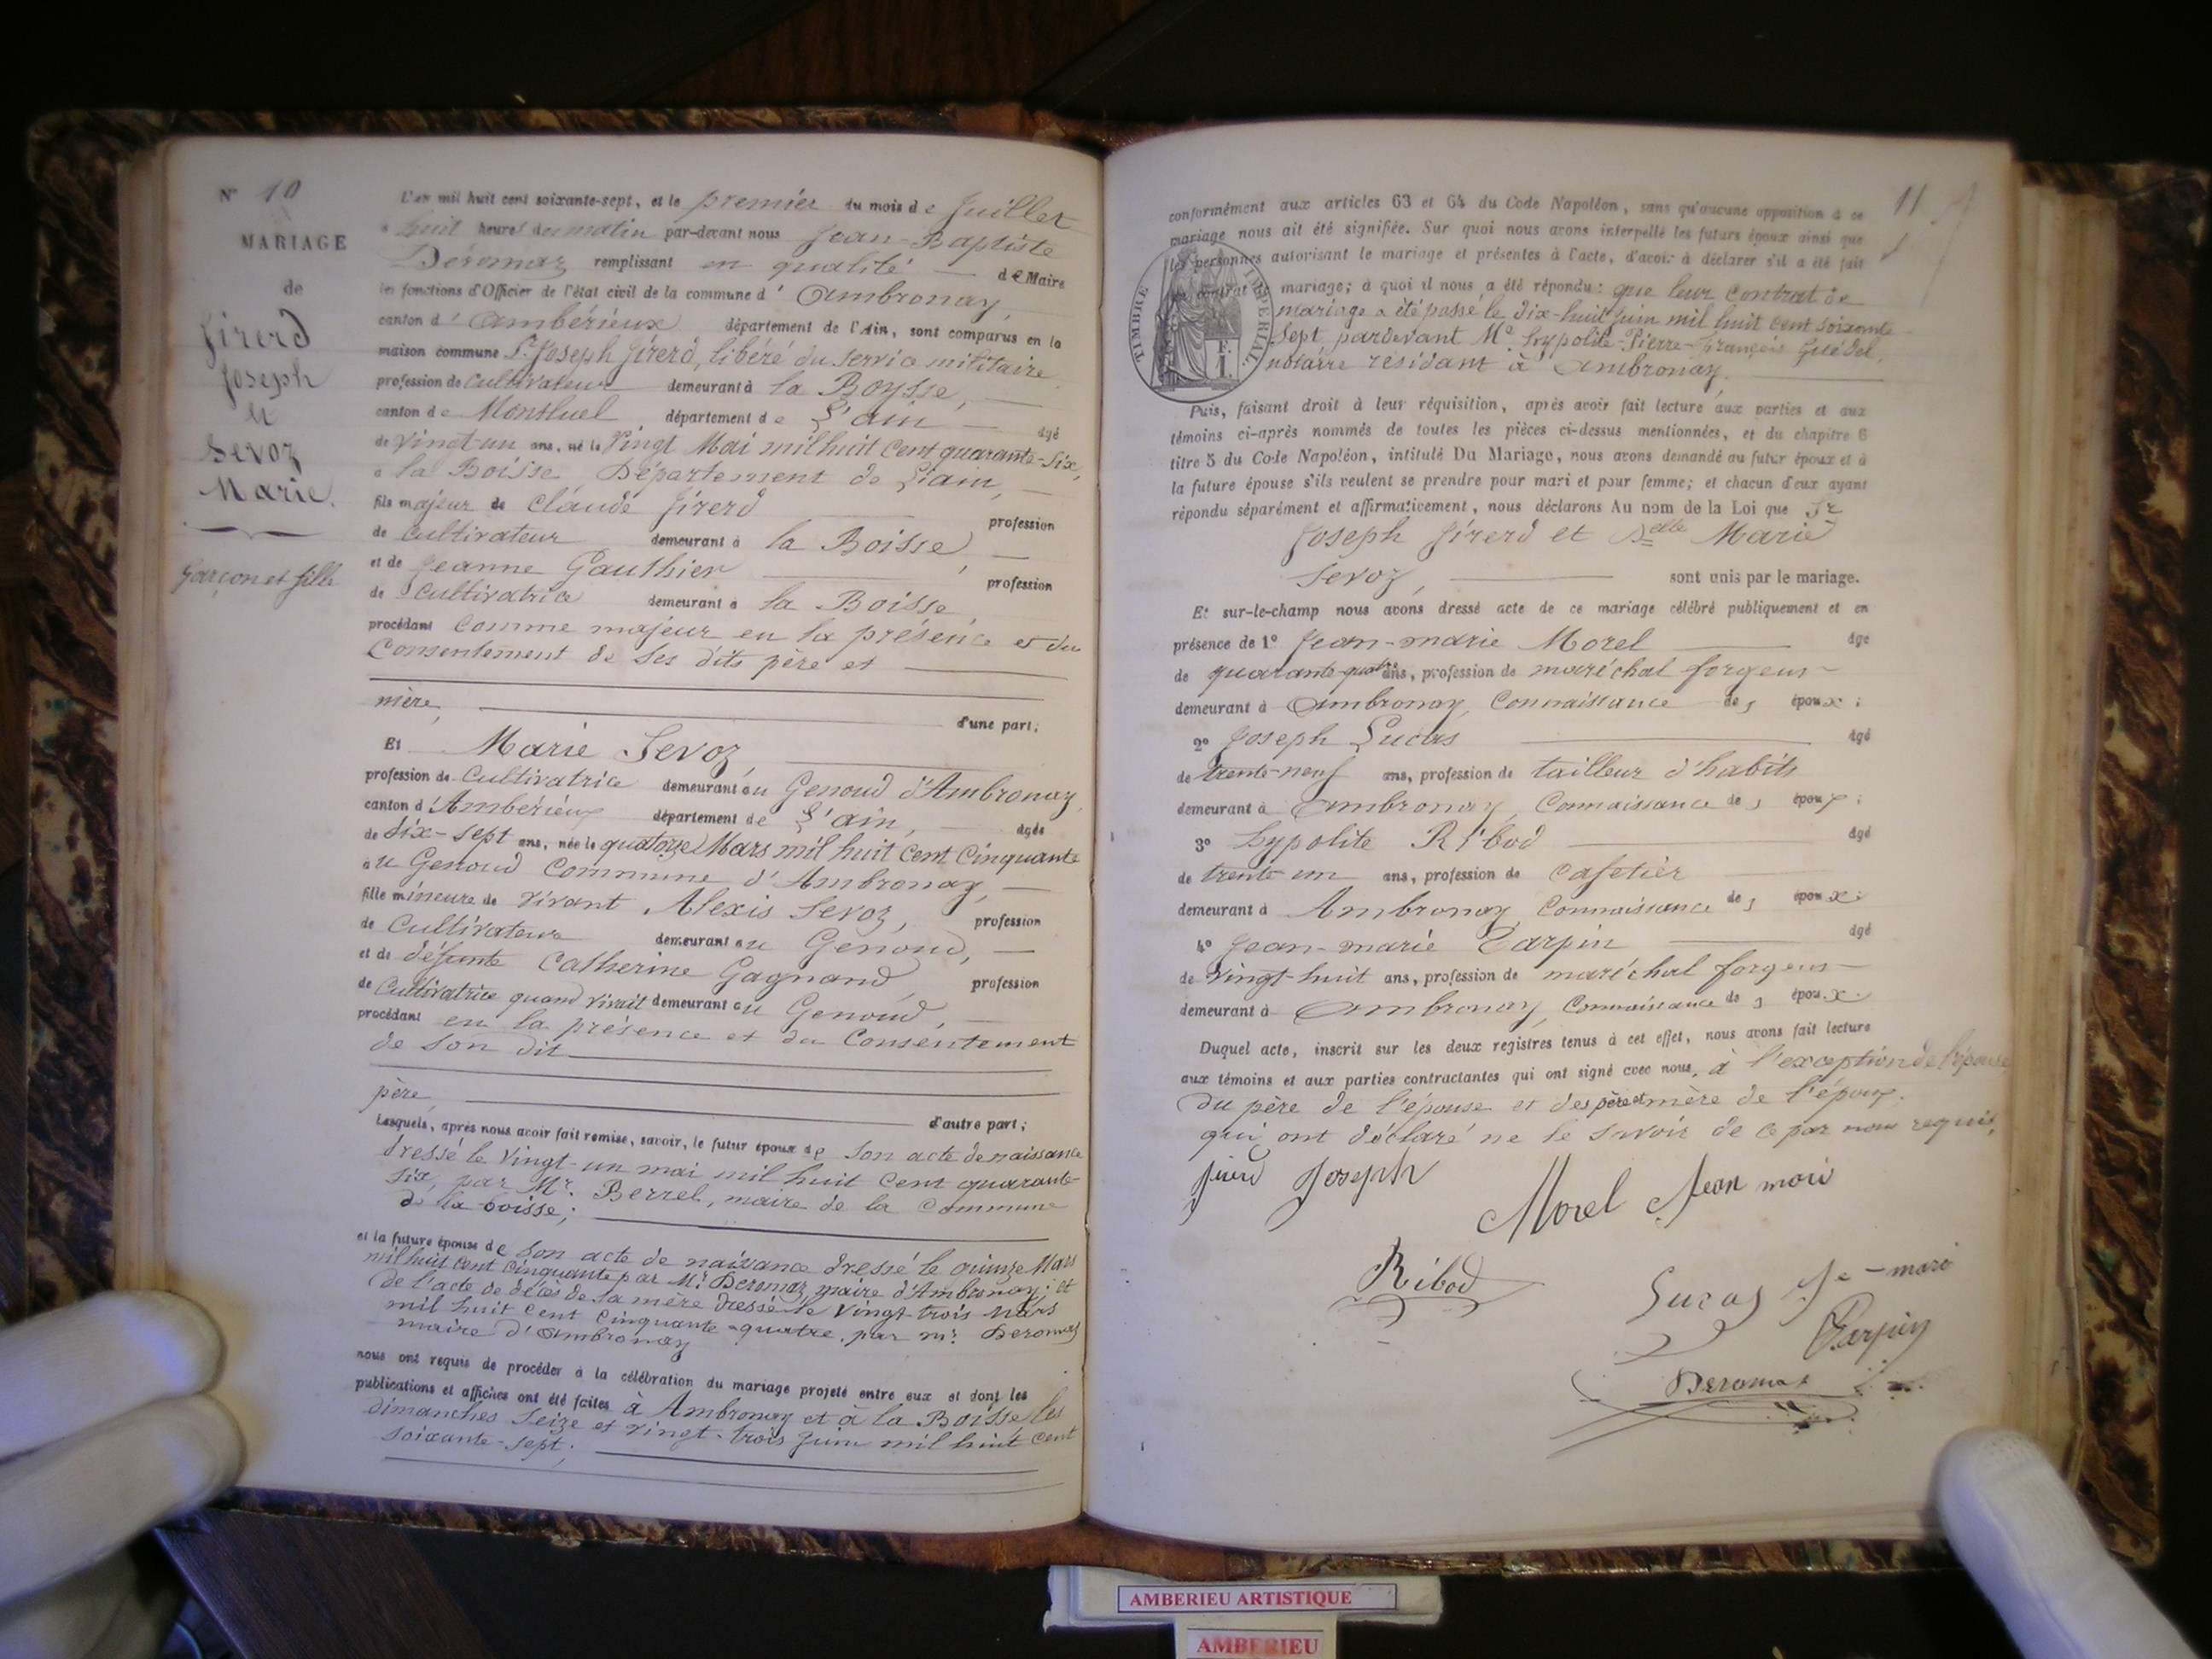 N° 10
MARIAGE
de
Girerd
Joseph
et
Sevoz
Marie.
garçon et fille
L'an mil huit cent soixante-sept, et le premier du mois de Juillet
à huit heures du matin par-devant nous Jean-Baptiste
Déromaz remplissant en qualité de Maire
les fonctions d'Officier de l'état civil de la commune d'Ambronay,
canton d'Ambérieux département de l'Ain, sont comparus en la
maison commune Sr Joseph Girerd, libéré du service militaire
profession de Cultivateur demeurant à la Boysse,
canton de Montluel département de L'ain âgé
de vingt-un ans, né le Vingt Mai mil huit Cent quarante-Six,
à la Boisse, Département de L'ain,
fils majeur de Claude Girerd profession
de Cultivateur demeurant à la Boisse,
et de Jeanne Gauthier, profession
de Cultivatrice demeurant à la Boisse
procédant Comme majeur en la présence et du
Consentement de Ses dits père et
mère, d'une part;
Et Marie Sevoz,
profession de Cultivatrice demeurant au Genoud d'Ambronay,
canton d'Ambérieux département de L'ain, âgée
de dix-sept ans, née le quatorze Mars mil huit Cent Cinquante
au Genoud Commune d'Ambronay,
fille mineure de vivant Alexis Sevoz, profession
de Cultivateur demeurant au Genoud,
et de défunte Catherine Gagnand, profession
de Cultivatrice quand vivait demeurant au Genoud,
procédant en la présence et du Consentement
de Son dit
père, d'autre part;
Lesquels, après nous avoir fait remise, savoir, le futur époux de Son acte de naissance
dressé le Vingt-un mai mil huit Cent quarante-
six, par Mr. Berrel, maire de la Commune
de la boisse;
et la future épouse de Son acte de naissance dressé le quinze Mars
mil huit Cent Cinquante par Mr. Deromaz, maire d'Ambronay; et
de l'acte de décès de Sa mère dressé le Vingt-trois Mars
mil huit Cent Cinquante-quatre, par mr. Deromaz
maire d'Ambronay
nous ont requis de procéder à la célébration du mariage projeté entre eux et dont les
publications et affiches ont été faites à Ambronay et à la Boisse les
dimanches Seize et vingt-trois Juin mil huit Cent
soixante-sept;
11
conformément aux articles 63 et 64 du Code Napoléon, sans qu'aucune opposition à ce
mariage nous ait été signifiée. Sur quoi nous avons interpellé les futurs époux ainsi que
les personnes autorisant le mariage et présentes à l'acte, d'avoir à déclarer s'il a été fait
un contrat de mariage; à quoi il nous a été répondu: que leur Contrat de
mariage a été passé le Dix-huit Juin mil huit Cent Soixante
Sept pardevant Me. hypolite-Pierre-François Guédel,
notaire résidant à Ambronay.
TIMBRE IMPERIAL
F.
1.
Puis, faisant droit à leur réquisition, après avoir fait lecture aux parties et aux
témoins ci-après nommés de toutes les pièces ci-dessus mentionnées, et du chapitre 6
titre 5 du Code Napoléon, intitulé Du Mariage, nous avons demandé au futur époux et à
la future épouse s'ils veulent se prendre pour mari et pour femme; et chacun d'eux ayant
répondu séparément et affirmativement, nous déclarons Au nom de la Loi que Sr
Joseph Girerd et Delle Marie
Sevoz, sont unis par le mariage.
Et sur-le-champ nous avons dressé acte de ce mariage célébré publiquement et en
présence de 1° Jean-marie Morel âgé
de quarante-quatre ans, profession de maréchal forgeur
demeurant à Ambronay, Connaissance des époux;
2° Joseph Lucas âgé
de trente-neuf ans, profession de tailleur d'habits
demeurant à Ambronay, Connaissance des époux;
3° hypolite Ribod âgé
de trente un ans, profession de Cafetier
demeurant à Ambronay Connaissance des époux;
4° Jean-marie Tarpin âgé
de vingt-huit ans, profession de maréchal forgeur
demeurant à Ambronay, Connaissance des époux.
Duquel acte, inscrit sur les deux registres tenus à cet effet, nous avons fait lecture
aux témoins et aux parties contractantes qui ont signé avec nous, à l'exception de l'épouse
du père de l'épouse et des père et mère de l'époux.
qui ont déclaré ne le Savoir de ce par nous requis,
Joseph
Morel Jean mari
Ribod
Lucas Je-mari
Tarpin
Deromaz
AMBERIEU ARTISTIQUE
AMBERIEU